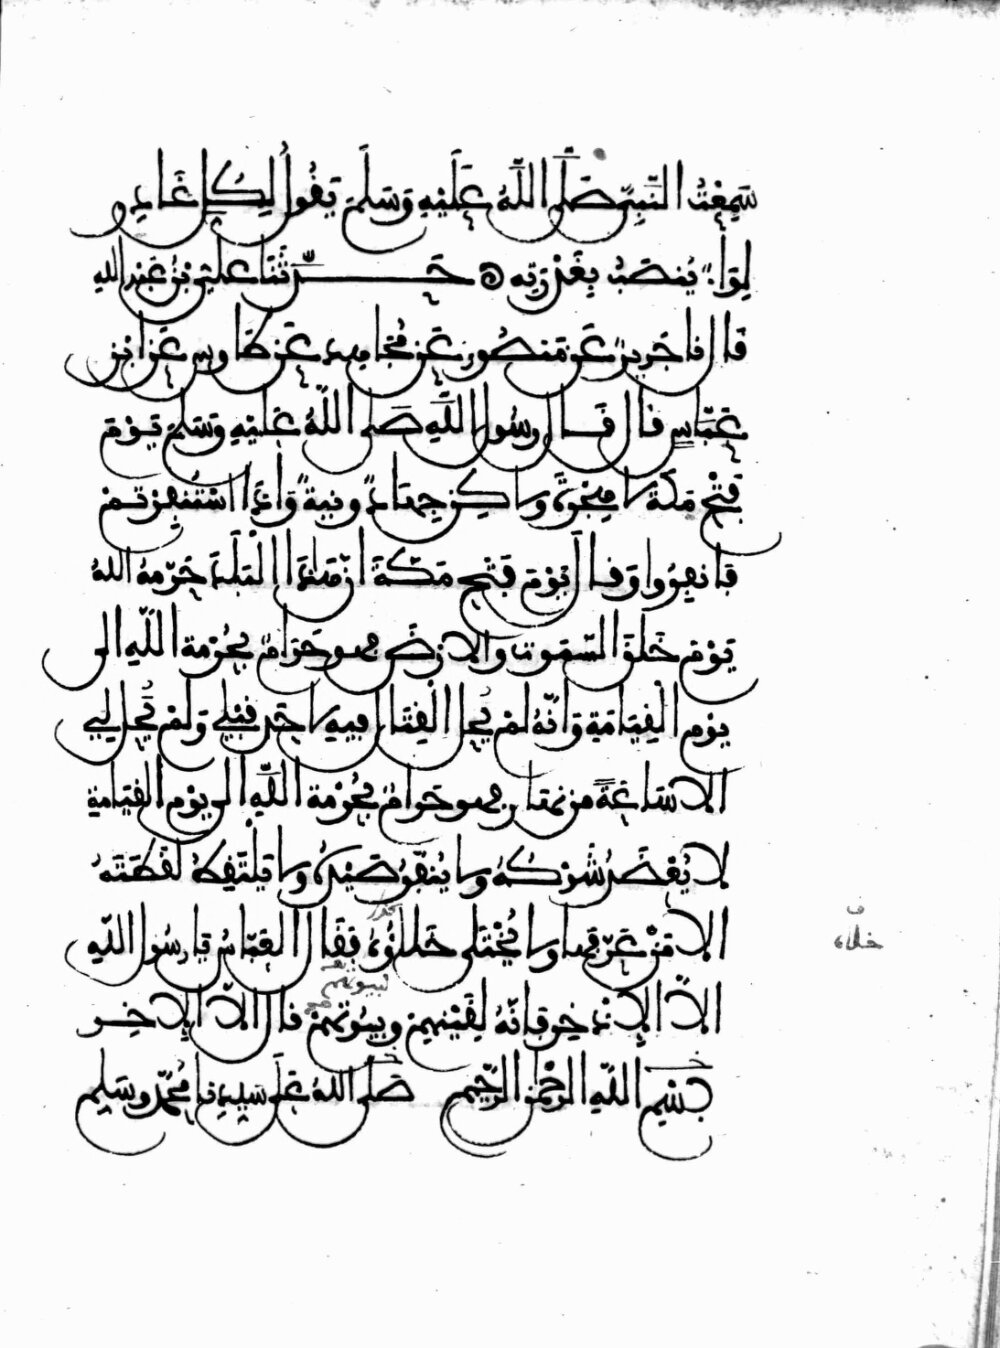 سَمِعْتُ النَّبِيَّ صَلَّى اللَّهُ عَلَيْهِ وَسَلَّمَ يَقُولُ لِكُلِّ غَادِرٍ
لِوَاءٌ يُنصَبُ بِغَدْرَتِهِ حَدَّثَنَا عَلِيُّ بْنُ عَبْدِ اللهِ
قَالَ نا جَرِيرٌ عَن مَنصُورٍ عَن مُجَاهِدٍ عَن طَاوسٍ عَنِ ابْنِ
عَبَّاسٍ قَالَ قَالَ رسُولُ اللَّهِ صَلَى اللَّهُ عَلَيْهِ وَسَلَّمَ يَوْمَ
فَتْحِ مَكَّةَ لا هِجْرَةَ ولاكِن جِهَادٌ ونِيةٌ وَإِذَا اسْتُنْفِرْتمْ
فَانفِرُوا وَقَالَ يَوْمَ فَتْحِ مَكَّةَ إِنَّ هَاذَا الْبَلَدَ حَرَّمهُ اللهُ
يَوْمَ خَلَقَ السَّمَوتِ والارْضَ فهو حَرَامٌ بِحُرْمةِ اللَّهِ الى
يوْمِ الْقِيَامَةِ وَإنَّهُ لمْ يَحِلَّ الْقِتَالُ فيهِ لاحَدٍ قَبْلِي وَلَمْ يَحِلَّ لِي
الا سَاعَةً من نهَارٍ فهو حَرَامٌ بِحُرْمةِ اللَّهِ الى يوْمِ القيَامةِ
لا يُعْضَدُ شَوْكُهُ ولا يُنَفَّرُ صَيْدُهُ ولا يَلْتَقِطُ لُقَطَتَهُ
الا مَنْ عَرَّفهَا ولا يُخْتَلَى خَلاؤُهُ فَقَالَ الْعَبَّاسُ يَا رسُولَ اللَّهِ
خلاه
لبيوتهم
الاَّ الاِذْخِرَ فَإنَّهُ لِقَيْنِهِمْ وبيُوتهِمْ قَالَ الاَّ الاِذخِرَ
بِسْمِ اللَّهِ الرَّحْمَنِ الرَّحِيمِ صَلى اللهُ عَلَى سَيِّدِنَا مُحَمَّدٍ وسَلِّم